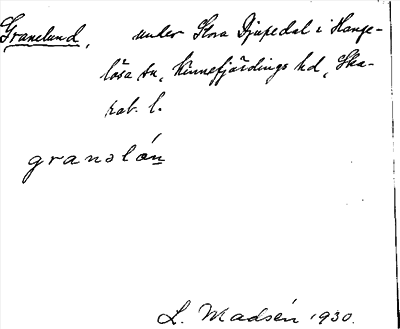 Granelund, under Stora Djupedal i Hange-
lösa sn, Kinnefjärdings hd, Ska-
rab. l.
granəlón
L. Madsén 1930.